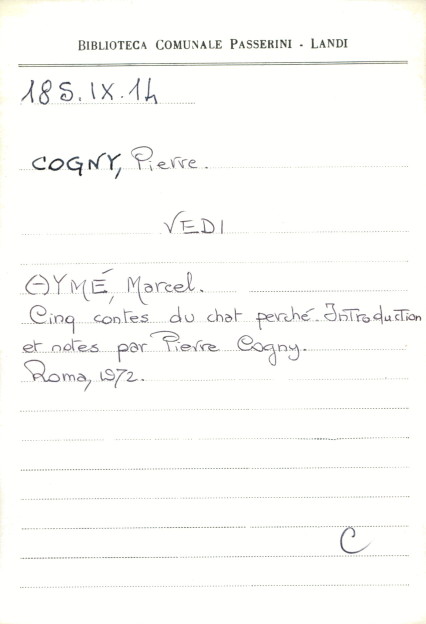 BIBLIOTECA COMUNALE PASSERINI - LANDI
18S.IX.14
COGNY, Pierre.
VEDI
AYMÉ, Marcel.
Cinq contes du chat perché. Introduction
et notes par Pierre Cogny.
Roma, 1972.
C